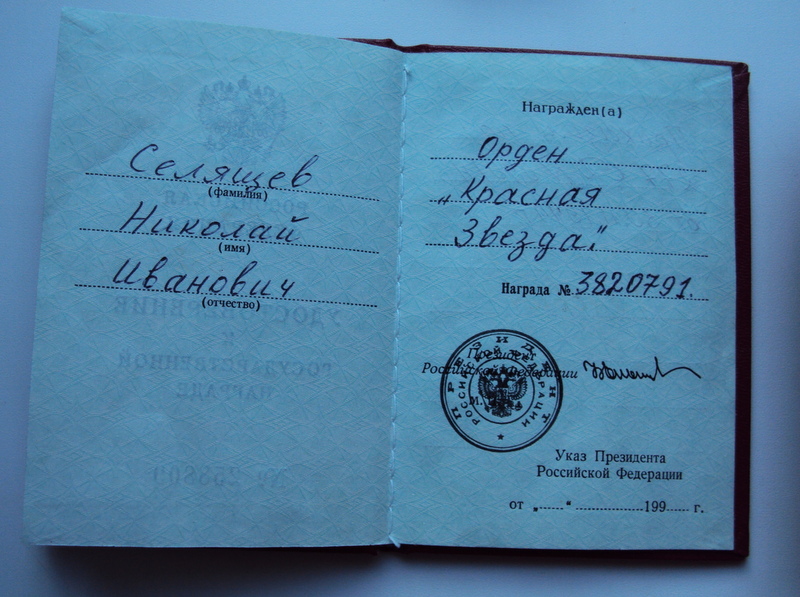 Селящев
(фамилия)
Николай
(имя)
Иванович
(отчество)
Награжден(а)
Орден
„Красная
Звезда."
Награда № 3820791.
Президент
Российской Федерации
М.
ПРЕЗИДЕНТ
РОССИЙСКОЙ ФЕДЕРАЦИИ
Указ Президента
Российской Федерации
от „ “ 199 г.